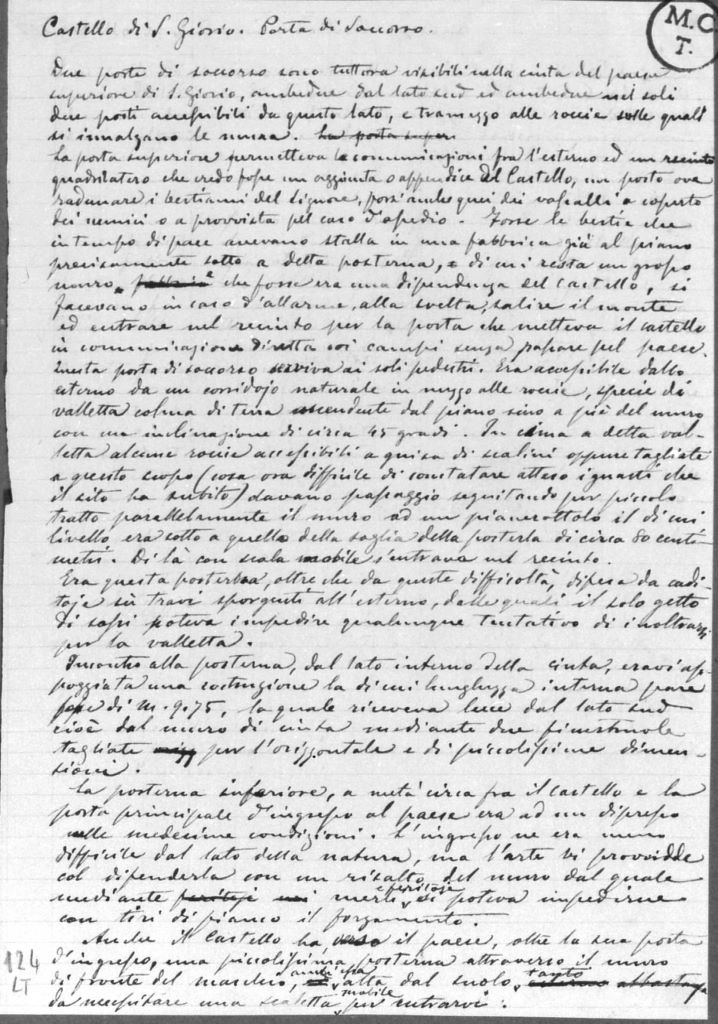 Castello di S. Giorio. Porta di Soccorso.
M.C.
T.
Due porte di soccorso sono tuttora visibili nella cinta del paese
superiore di S. Giorio, ambedue dal lato sud ed ambedue nei soli
due posti accessibili da questo lato, e tramezzo alle roccie sulle quali
si innalzano le mura. la porta super
La porta superiore permetteva le communicazioni fra l'esterno ed un recinto
quadrilatero che credo fosse un aggiunta o appendice del Castello, un posto ove
radunare i bestiami del Signore, forsi anche quei dei vassalli a coperto
dei nemici o a provvista pel caso d'assedio. Forse le bestie che
in tempo di pace avevano stalla in una fabbrica già al piano
precisamente sotto a detta posterna, e di cui resta un grosso
muro, che forse era una dipendenza del Castello, si
facevano in caso d'allarme, alla svelta, salire il monte
ed entrare nel recinto per la porta che metteva il castello
in communicazione diretta coi campi senza passare pel paese.
Questa porta di soccorso serviva ai soli pedestri. Era accessibile dallo
esterno da un corridojo naturale in mezzo alle roccie, specie di
valletta colma di terra ascendente dal piano sino a piè del muro
con una inclinazione di circa 45 gradi. In cima a detta val-
letta alcune roccie accessibili a guisa di scalini oppure tagliate
a questo scopo (cosa ora difficile di constatare atteso i guasti che
il sito ha subito) davano passaggio seguitando per piccolo
tratto parallelamente il muro ad un pianerottolo il di cui
livello era sotto a quello della soglia della posterla di circa 80 centi-
metri. Di là con scala mobile s'entrava nel recinto.
Era questa posterla, oltre che da queste difficoltà, difesa da cadi-
toje su travi sporgenti all'esterno, dalle quali il solo getto
di sassi poteva impedire qualunque tentativo di inoltrarsi
per la valletta.
Incontro alla posterna, dal lato interno della cinta, eravi ap-
poggiata una costruzione la di cui lunghezza interna pare
di m. 9.75, la quale riceveva luce dal lato sud
cioè dal muro di cinta mediante due finestruole
tagliate per l'orizzontale e di piccolissime dimen-
sioni.
La posterna inferiore, a metà circa fra il castello e la
porta principale d'ingresso al paese era ad un dipresso
nelle medesime condizioni. L'ingresso ne era meno
difficile dal lato della natura, ma l'arte vi provvidde
col difenderla con un risalto del muro dal quale
mediante merli e feritoje si poteva impedirne
con tiri di fianco il forzamento.
Anche il Castello ha verso il paese, oltre la sua porta
d'ingresso, una piccolissima posterna attraverso il muro
di fronte del maschio, anch'essa alta dal suolo, tanto abbastanza
da necessitare una scaletta mobile per entrarvi.
124
LT